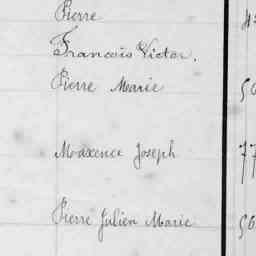 Pierre
Francois Victor.
Pierre Marie
Maxence Joseph 77
Pierre Julien Marie